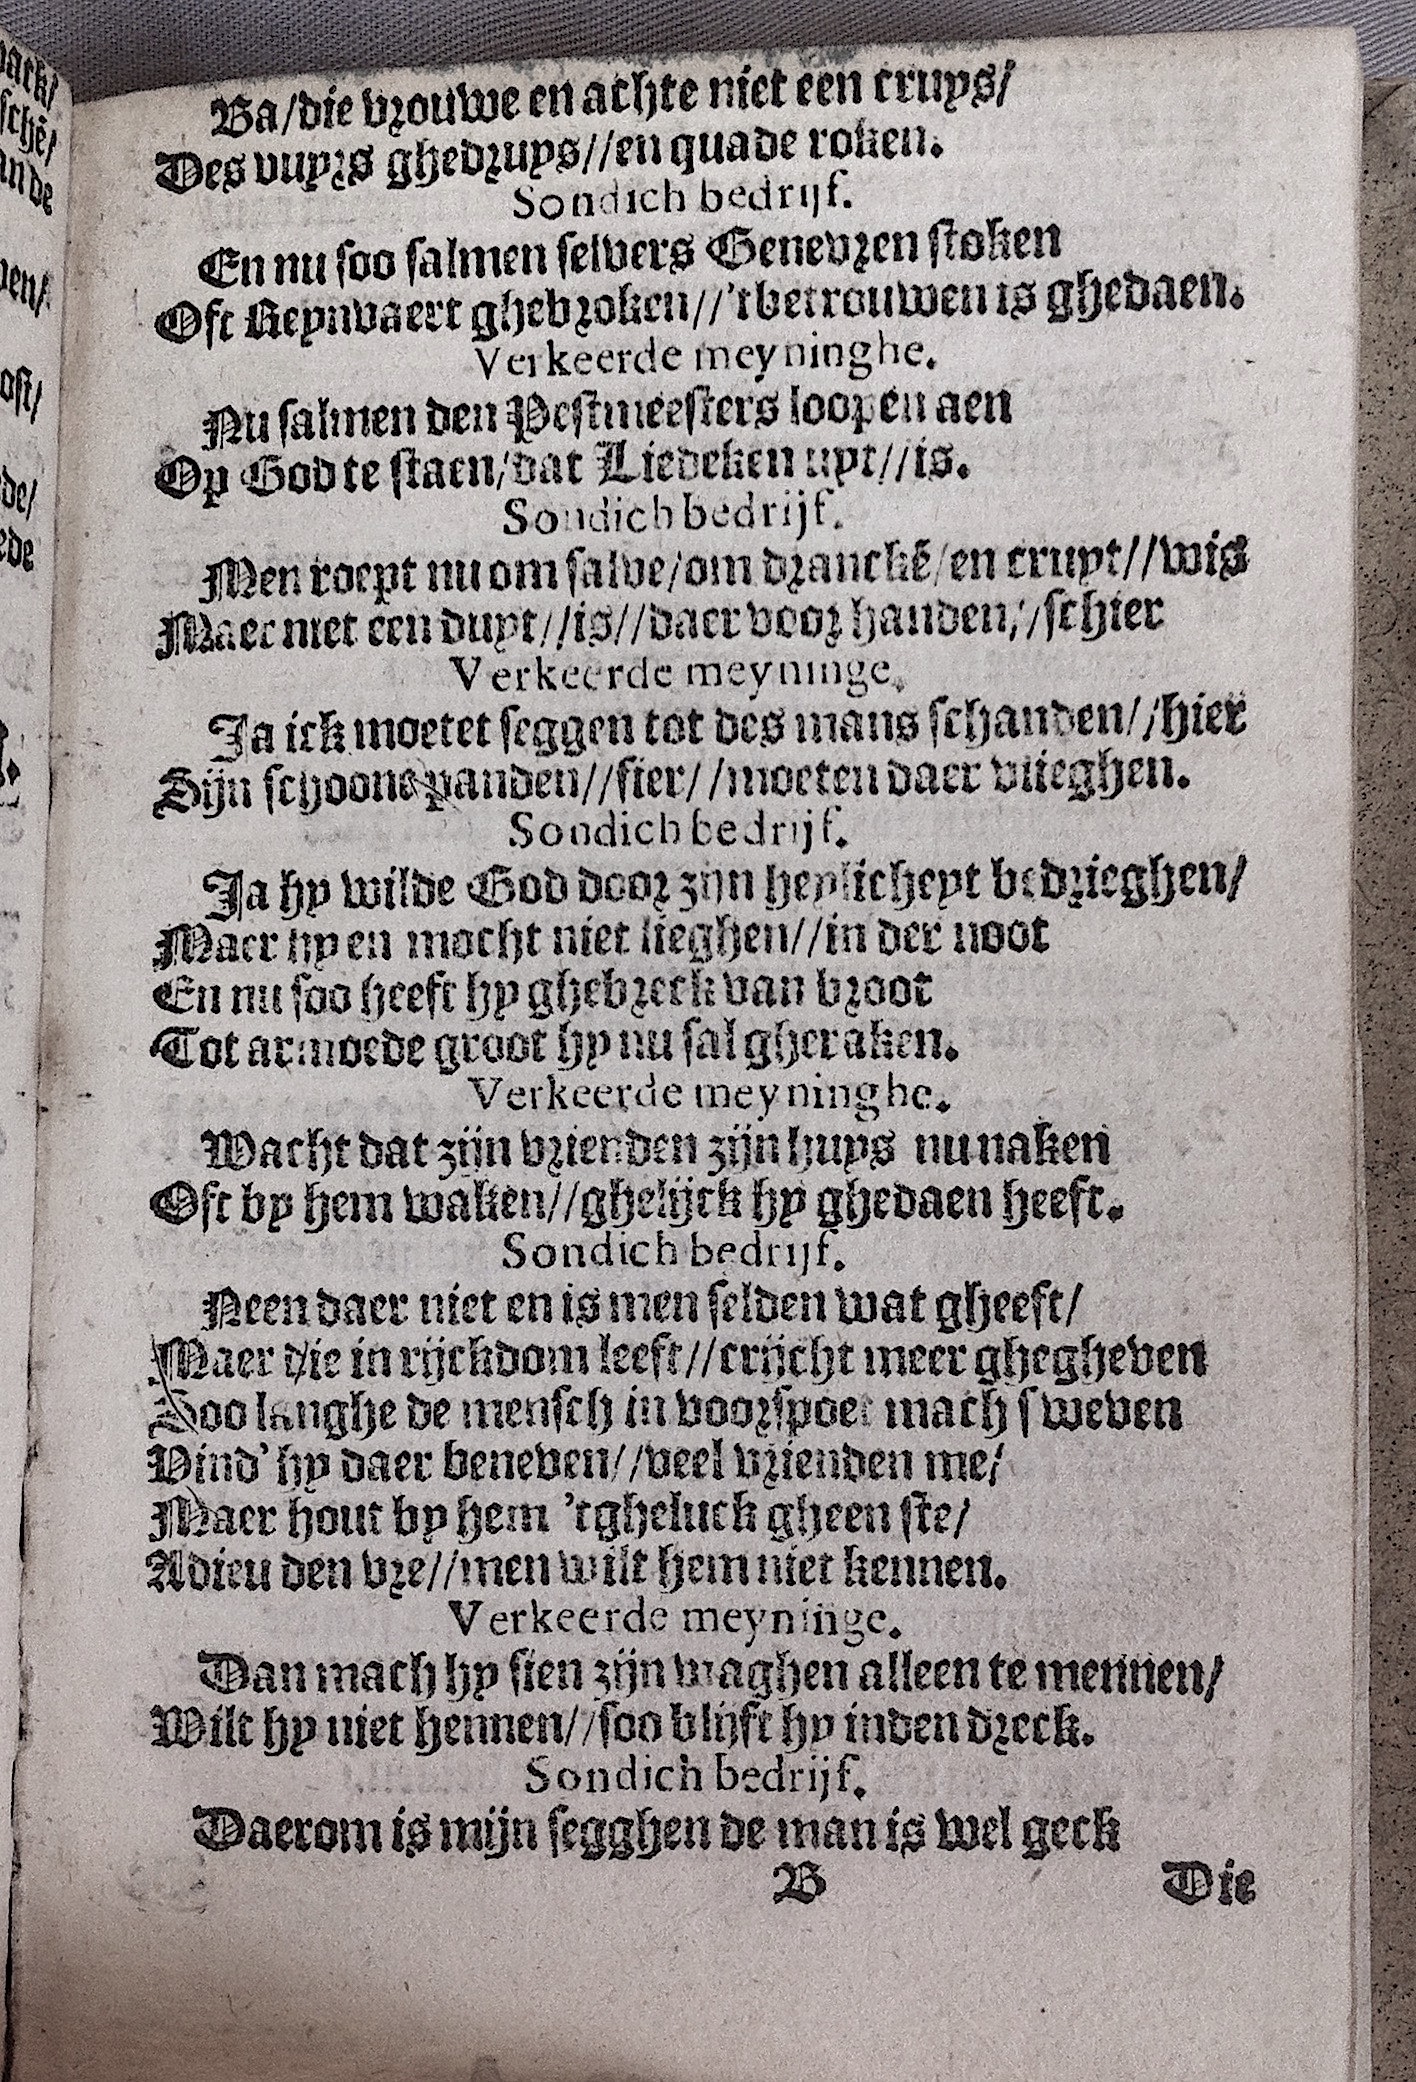 Ba/die vrouwe en achte niet een cruys/
Des vuyrs ghedruys//en quade roken.
Sondich bedrijf.
En nu soo salmen selvers Genevren stoken
Oft Reynvaert ghebroken//'tbetrouwen is ghedaen.
Verkeerde meyninghe.
Nu salmen den Pestmeesters loopen aen
Op God te staen/dat Liedeken uyt//is.
Sondich bedrijf.
Men roept nu om salve/om dranckē/en cruyt//wis
Maer niet een duyt//is//daer voor handen//schier
Verkeerde meyninge.
Ja ick moetet seggen tot des mans schanden//hier
Sijn schoone panden//fier//moeten daer vlieghen.
Sondich bedrijf.
Ja hy wilde God door zijn heylicheyt bedrieghen/
Maer hy en mocht niet lieghen//in der noot
En nu soo heeft hy ghebreck van broot
Tot armoede groot hy nu sal gheraken.
Verkeerde meyninghe.
Wacht dat zijn vrienden zijn huys nu naken
Oft by hem waken//ghelijck hy ghedaen heeft.
Sondich bedrijf.
Neen daer niet en is men selden wat gheeft/
Maer die in rijckdom leeft//crijcht meer ghegheven
Soo langhe de mensch in voorspoet mach sweven
Vind' hy daer beneven//veel vrienden me/
Maer hout by hem 'tgheluck gheen ste/
Adieu den vre//men wilt hem niet kennen.
Verkeerde meyninge.
Dan mach hy sien zijn waghen alleen te mennen/
Wilt hy niet hennen//soo blijft hy inden dreck.
Sondich bedrijf.
Daerom is mijn segghen de man is wel geck
B Die